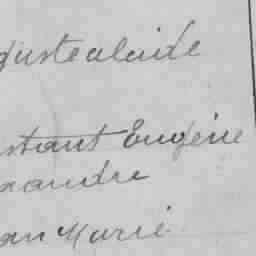 gustealaide
stant Eugénie
xandre
an Marie